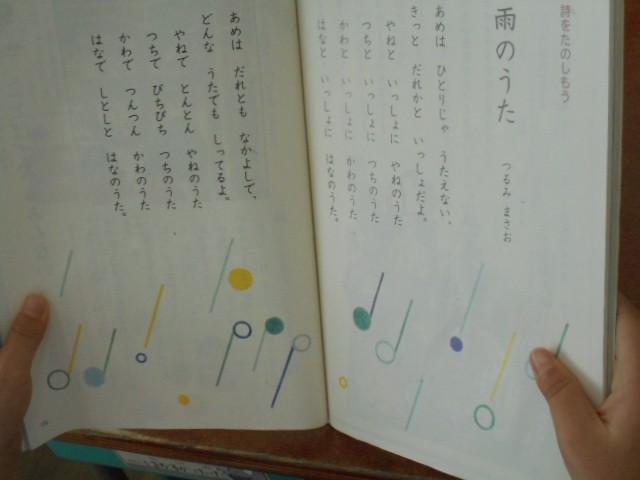 詩をたのしもう
雨のうた
つるみ まさお
あめは ひとりじゃ うたえない、
きっと だれかと いっしょだよ。
やねと いっしょに やねのうた
つちと いっしょに つちのうた
かわと いっしょに かわのうた
はなと いっしょに はなのうた。
あめは だれとも なかよしで、
どんな うたでも しってるよ。
やねで とんとん やねのうた
つちで ぴちぴち つちのうた
かわで つんつん かわのうた
はなで しとしと はなのうた。